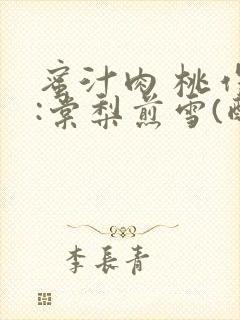 蜜汁肉桃作
:棠梨煎雪(酥
李長青